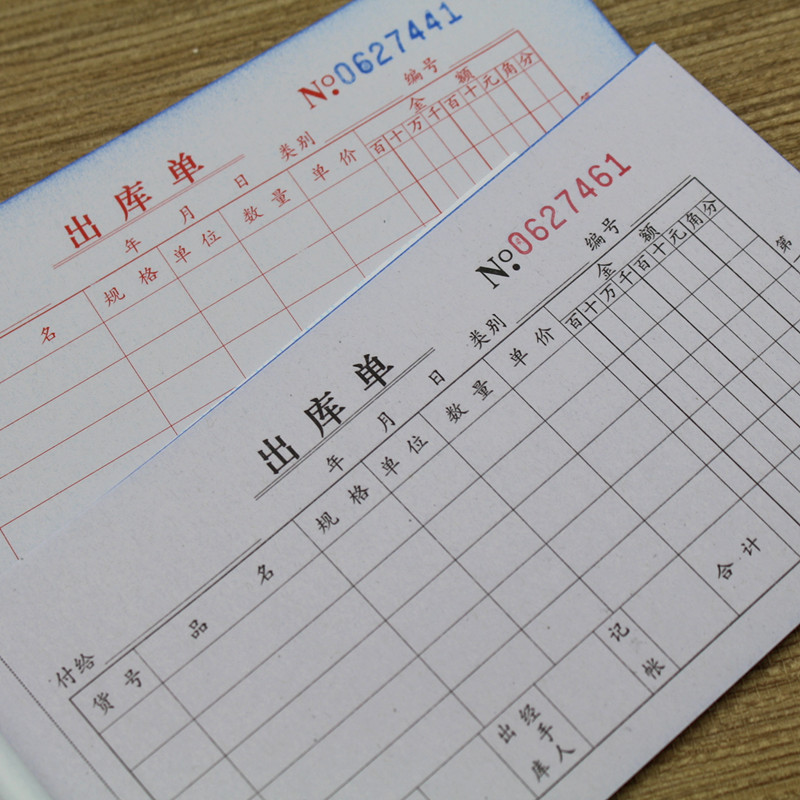 No.0627441
编号
类别
出库单
年 月 日
名 规格 单位 数量 单价 金额
百十万千百十元角分
No.0627461
编号
类别
出库单
年 月 日
付给
货号 品名 规格 单位 数量 单价 金额
百十万千百十元角分
第
合计
记帐
出库经手人